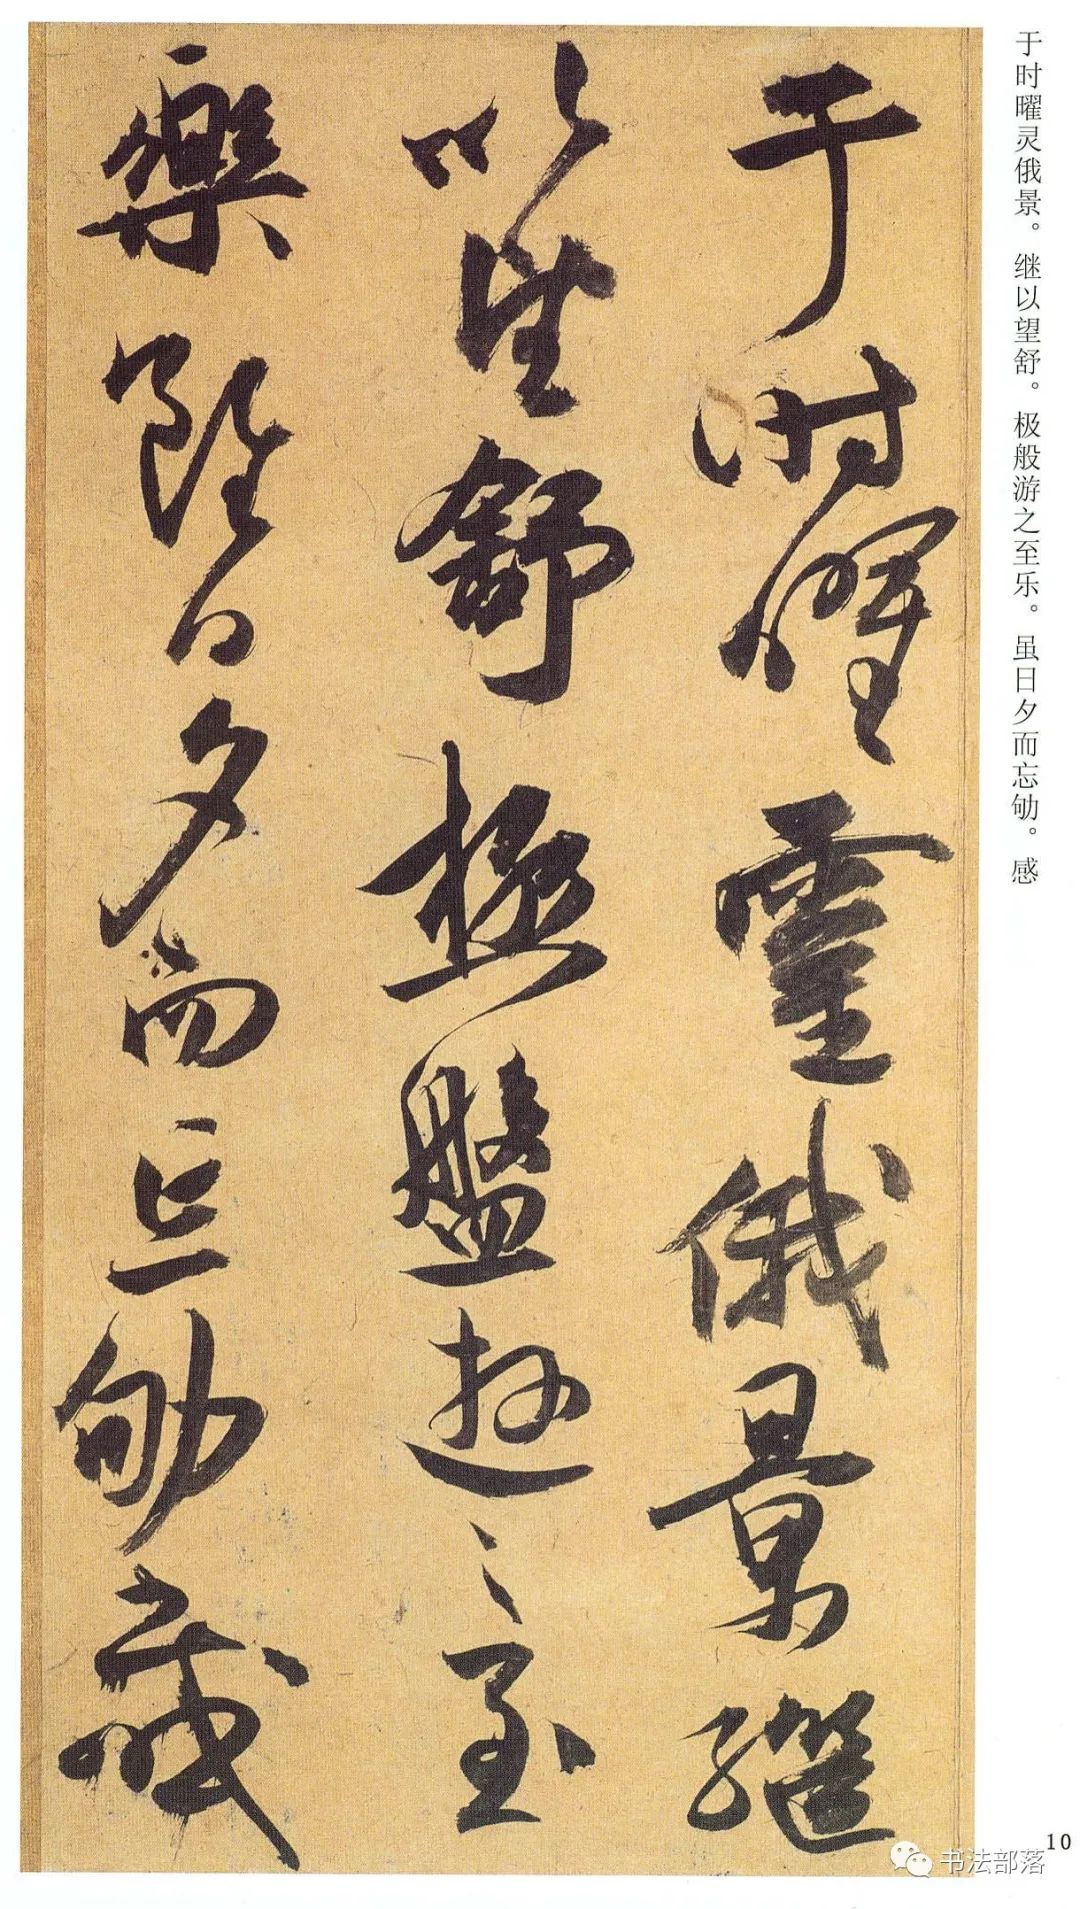 于时曜灵俄景。继以望舒。极般游之至乐。虽日夕而忘劬。感
于時曜靈俄景繼
以望舒極盤遊之至
樂雖日夕而忘劬感
10
书法部落